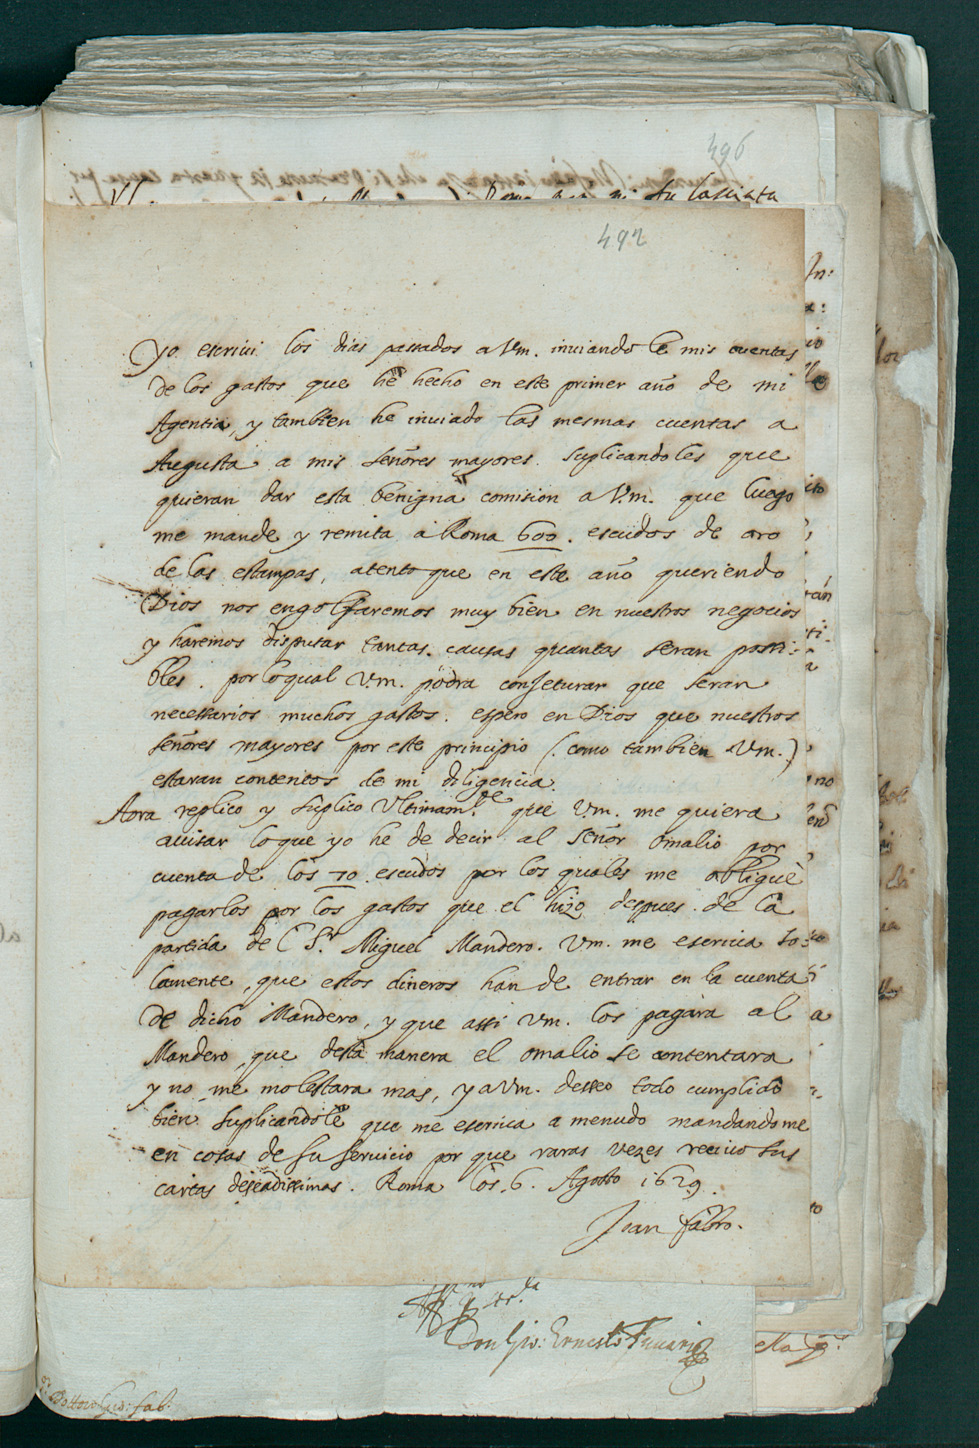 496
492
yo escriui los dias passados a Vm. inuiando le mis cuentas
de los gastos que he hecho en este primer año de mi
Agentia, y tambien he inuiado las mesmas cuentas a
Augusta a mis señores mayores. suplicandoles que
quieran dar esta benigna comision a Vm. que luego
me mande y remita a Roma 600. escudos de oro
de las estampas, atento que en este año queriendo
Dios nos engolfaremos muy bien en nuestros negocios
y haremos disputar tantas causas quantas seran possi:
bles. por lo qual Vm. podra conjeturar que seran
necessarios muchos gastos. espero en Dios que nuestros
señores mayores por este principio (como tambien Vm.)
estaran contentos de mi diligencia.
Aora replico y suplico Vltimam.te que Vm. me quiera
auisar lo que yo he de decir al señor Omalio por
cuenta de los 70 escudos por los quales me obliguè
pagarlos por los gastos que el hizo despues de la
partida del S.r Miguel Mandero. Vm. me escriuia so:
lamente, que estos dineros han de entrar en la cuenta
de dicho Mandero, y que assi Vm. los pagara al
Mandero, que desta manera el Omalio se contentara
y no me molestara mas, y a Vm. desseo todo cumplido
bien suplicandole que me escriua a menudo mandandome
en cosas de su seruicio por que raras vezes reciuo sus
cartas desseadissimas. Roma los 6. Agosto 1629.
Juan fabro.
Don Gio: Ernesto